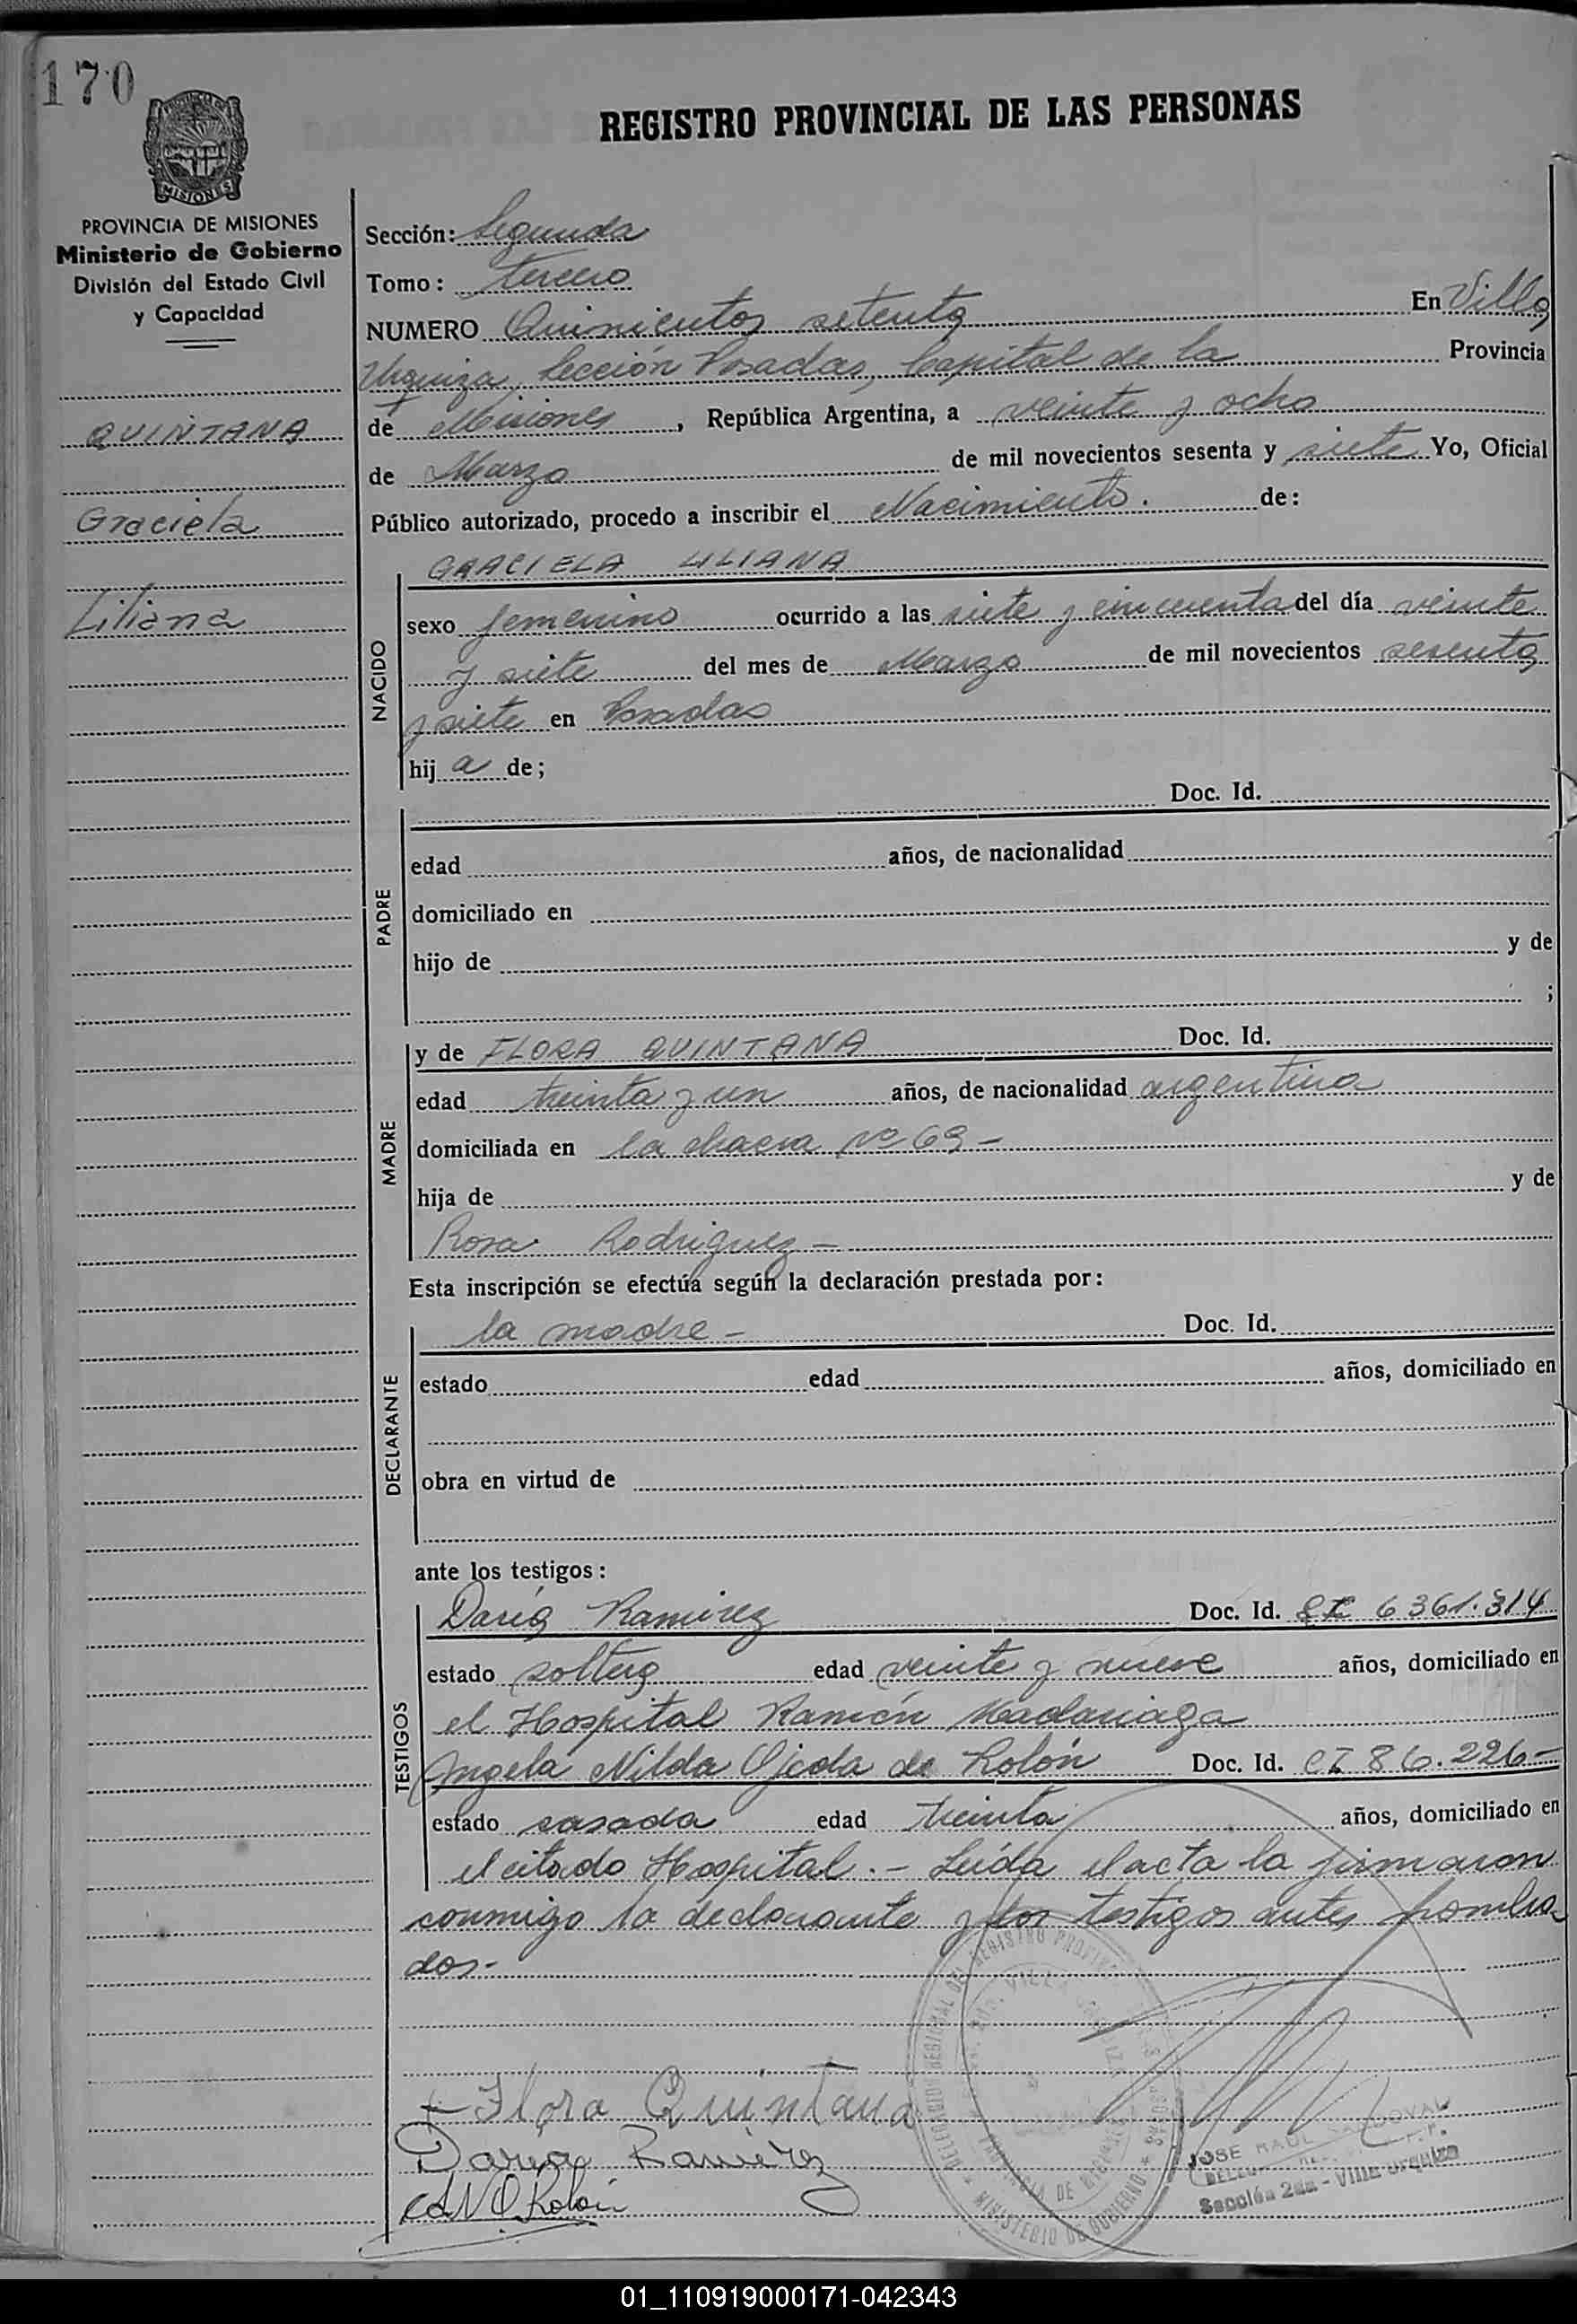 170
REGISTRO PROVINCIAL DE LAS PERSONAS
MISIONES
PROVINCIA DE MISIONES
Ministerio de Gobierno
División del Estado Civil
y Capacidad
QUINTANA
Graciela
Liliana
Sección: Segunda
Tomo: tercero
NUMERO Quinientos setenta En Villa
Urquiza, Sección Posadas, Capital de la Provincia
de Misiones, República Argentina, a veinte y ocho
de Marzo de mil novecientos sesenta y siete Yo, Oficial
Público autorizado, procedo a inscribir el Nacimiento. de:
NACIDO
GRACIELA LILIANA
sexo femenino ocurrido a las siete y cincuenta del día veinte
y siete del mes de Marzo de mil novecientos sesenta
y siete en Posadas
hij a de;
PADRE
Doc. Id.
edad años, de nacionalidad
domiciliado en
hijo de y de
;
MADRE
y de FLORA QUINTANA Doc. Id.
edad treinta y un años, de nacionalidad argentina
domiciliada en la chacra Nº 69 -
hija de y de
Rosa Rodriguez -
Esta inscripción se efectúa según la declaración prestada por:
DECLARANTE
la madre - Doc. Id.
estado edad años, domiciliado en
obra en virtud de
ante los testigos:
TESTIGOS
Daría Ramirez Doc. Id. 6361.314
estado soltera edad veinte y nueve años, domiciliado en
el Hospital Ramón Madariaga
Angela Nilda Ojeda de Rolón Doc. Id. CI 86.226 -
estado casada edad treinta años, domiciliado en
el citado Hospital. - Leída el acta la firmaron
conmigo la declarante y los testigos antes nombra
dos -
Flora Quintana
Daria Ramirez
ANO Rolón
DELEGACION REGIONAL DEL REGISTRO PROVINCIAL
VILLA
MINISTERIO DE GOBIERNO
JOSE RAUL SANDOVAL
Sección 2da - Villa Urquiza
01_110919000171-042343